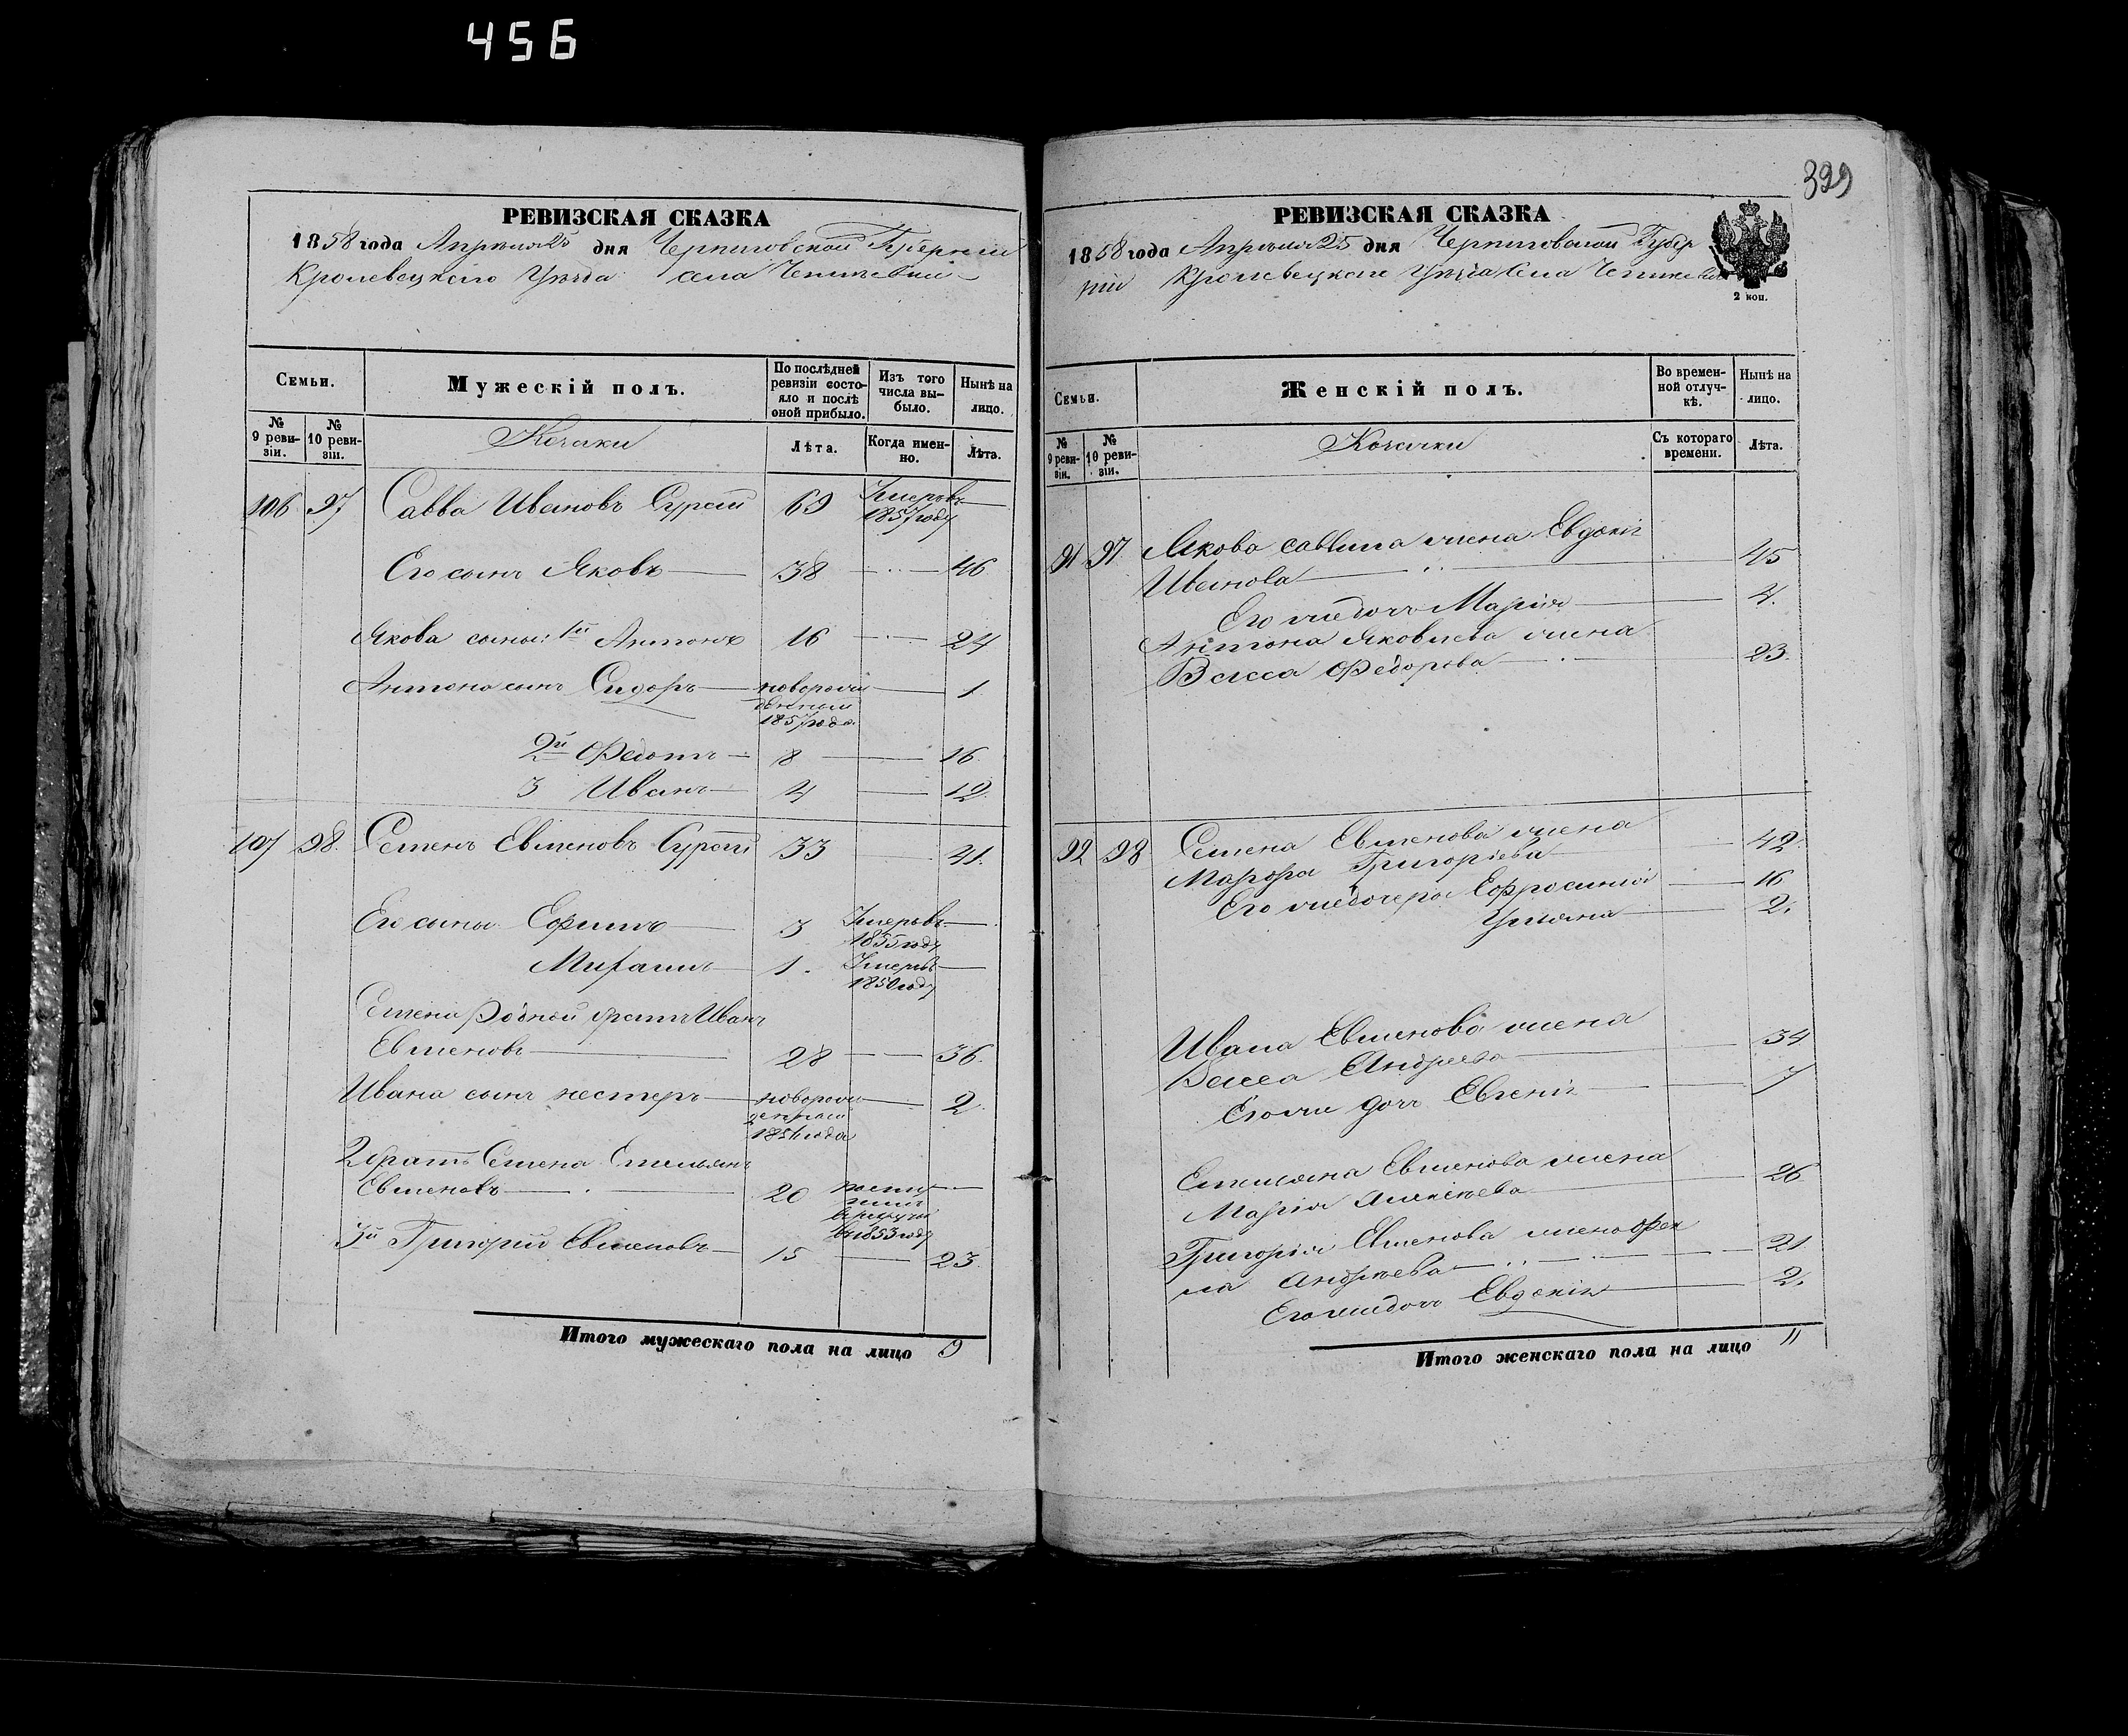 456
399
РЕВИЗСКАЯ СКАЗКА
1858 года Апреля 25 дня Черниговской Губернии
Кролевецкого Уезда села
Семьи.
Мужескій полъ.
По послѣдней ревизіи состояло и послѣ оной прибыло.
Изъ того числа выбыло.
Нынѣ на лицо.
№ 9 ревизіи.
№ 10 ревизіи.
Лѣта.
Когда именно.
Лѣта.
106 97 Савва Ивановъ 69 Умеръ въ 1857 году
Его сынъ Яковъ 38 46
Якова сыны: 1й Антонъ 16 24
Антона сынъ Сидоръ новорожденный 1857 года 1
2й Федотъ 8 16
3 Иванъ 4 12
107 98 Семенъ Евменовъ 33 41.
Его сыны Ефимъ 3 Умеръ въ 1855 году
1. Умеръ въ 1850 году
Семена Родной братъ Иванъ
Евменовъ 28 36.
Ивана сынъ Нестеръ новорожденный года 2
2 братъ Семена Емельянъ
Евменовъ 20 въ 1853 году
3й Григорий Евменовъ 15 23.
Итого мужескаго пола на лицо 9
РЕВИЗСКАЯ СКАЗКА
1858 года Апреля 25 дня Черниговской Губер
нии Кролевецкого Уезда Села
2 коп.
Семьи.
Женскій полъ.
Во временной отлучкѣ.
Нынѣ на лицо.
№ 9 ревизіи.
№ 10 ревизіи.
Съ котораго времени.
Лѣта.
91 97 Якова Саввина жена Евдокія
Иванова 45
Его же дочь Марія 4.
Антона Яковлева жена
Васса Федорова 23.
92 98 Семена Евменова жена
Григорьева 42.
Его же дочери Ефросинія 16
Ульяна 2.
Ивана Евменова жена
Васса Андреева 34
Его же дочь Евгенія 7
Емельяна Евменова жена
Марія Алексѣева 26
Григорія Евменова жена Фек
ла Андрѣева 21
Его же дочь Евдокія 2.
Итого женскаго пола на лицо 11